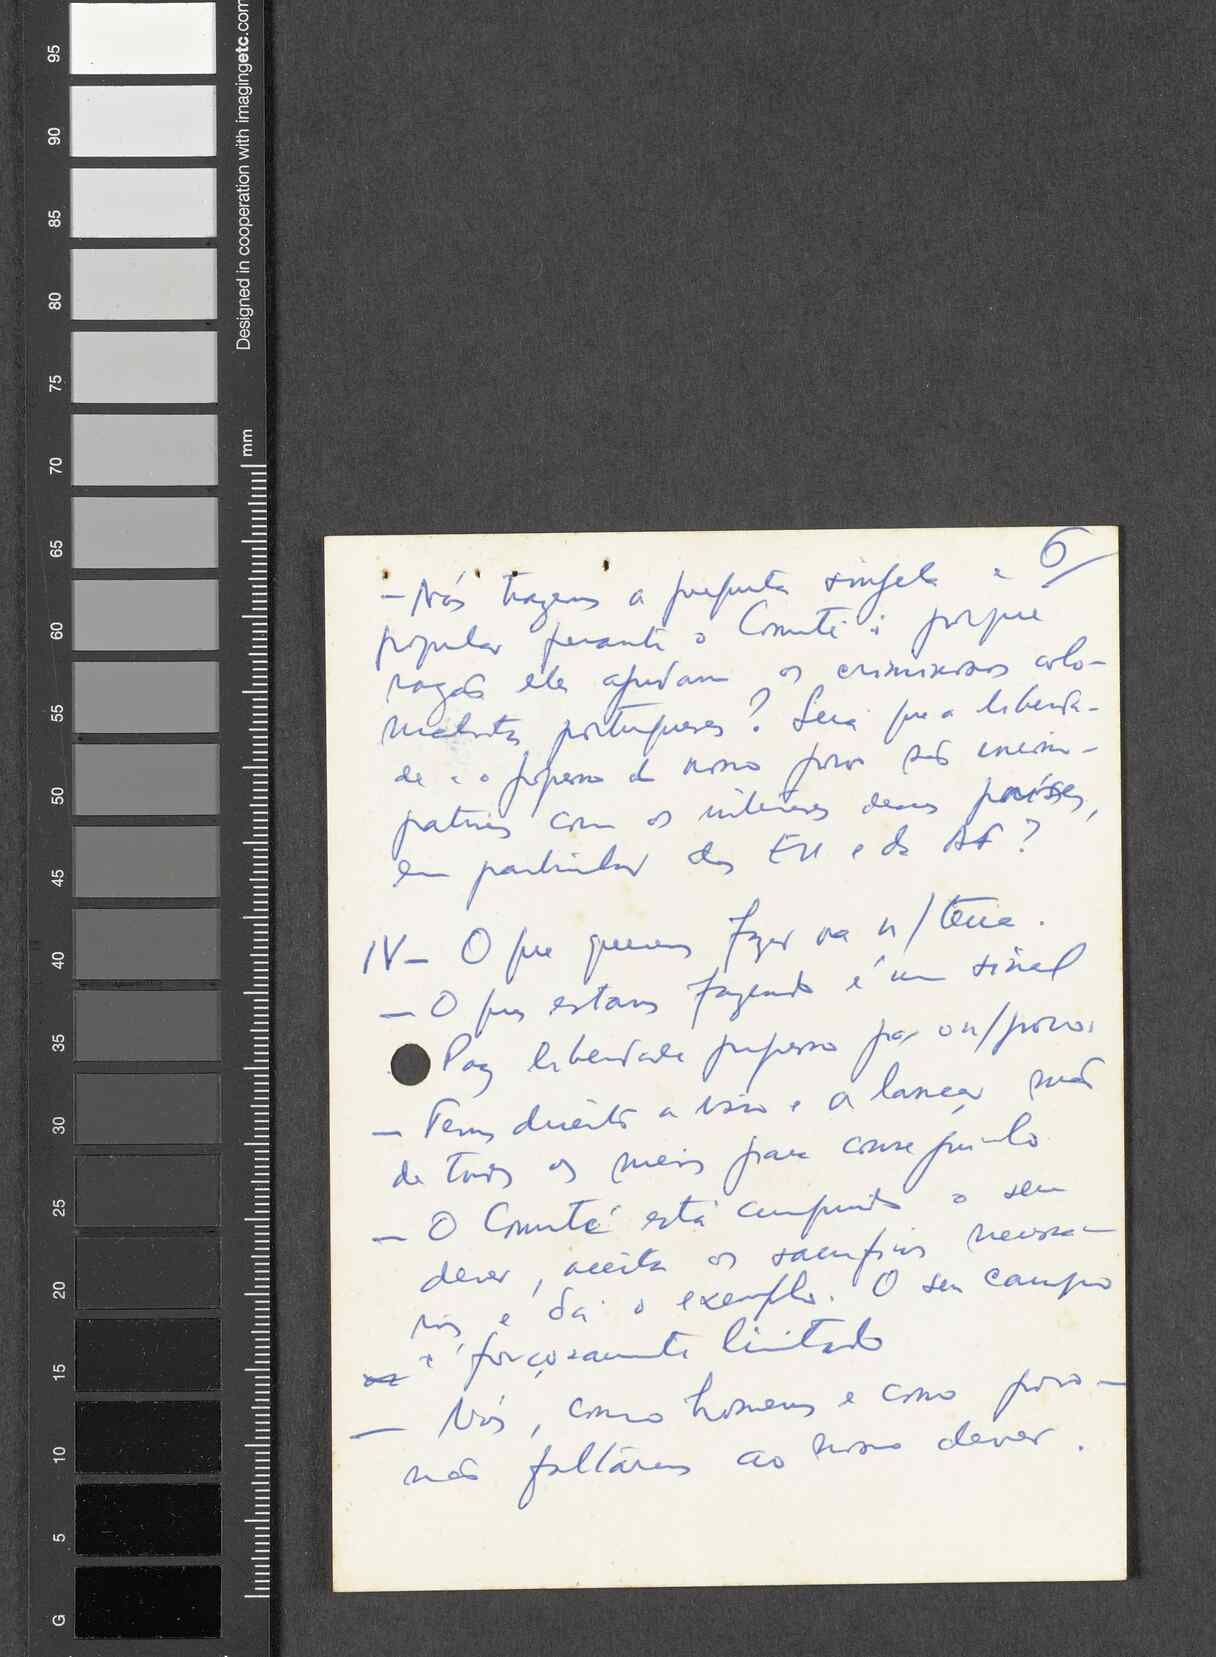 6
- Nós trazemos a pergunta singela e
popular perante o Comité: porque
razão eles ajudam os criminosos colo-
nialistas portugueses? Será que a liberda-
de e o progresso do nosso povo são incom-
patíveis com os interesses desses países,
em particular dos EU e da AF?
IV - O que queremos fazer na n/terra.
- O que estamos fazendo é um sinal
Paz liberdade progresso para o n/povo.
- Temos direito a isso e a lançar mão
de todos os meios para consegui-lo
- O Comité está cumprindo o seu
dever, aceita os sacrifícios necessá-
rios e dá o exemplo. O seu campo
é forçosamente limitado
- Nós, como homens e como povo -
não faltaremos ao nosso dever.
95
90
85
80
75
70
65
60
55
50
45
40
35
30
25
20
15
10
5
G
mm
Designed in cooperation with imagingetc.com